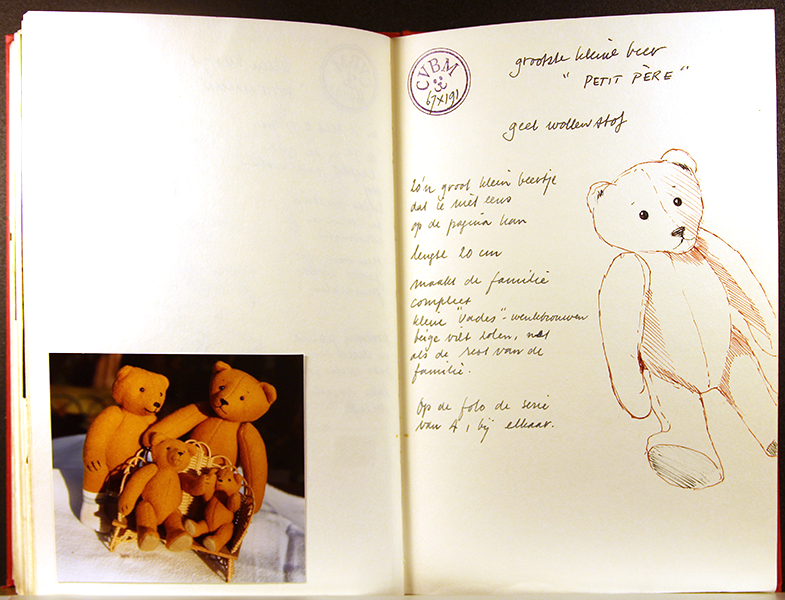 CVBM
67x191
grootste kleine beer
"PETIT PÈRE"
geel wollen stof
zo'n groot klein beertje
dat ie niet eens
op de pagina kan
lengte 20 cm
maakt de familie
compleet
kleine "vader"-wenkbrouwen
beige vilt zolen, net
als de rest van de
familie.
Op de foto de serie
van 4, bij elkaar.